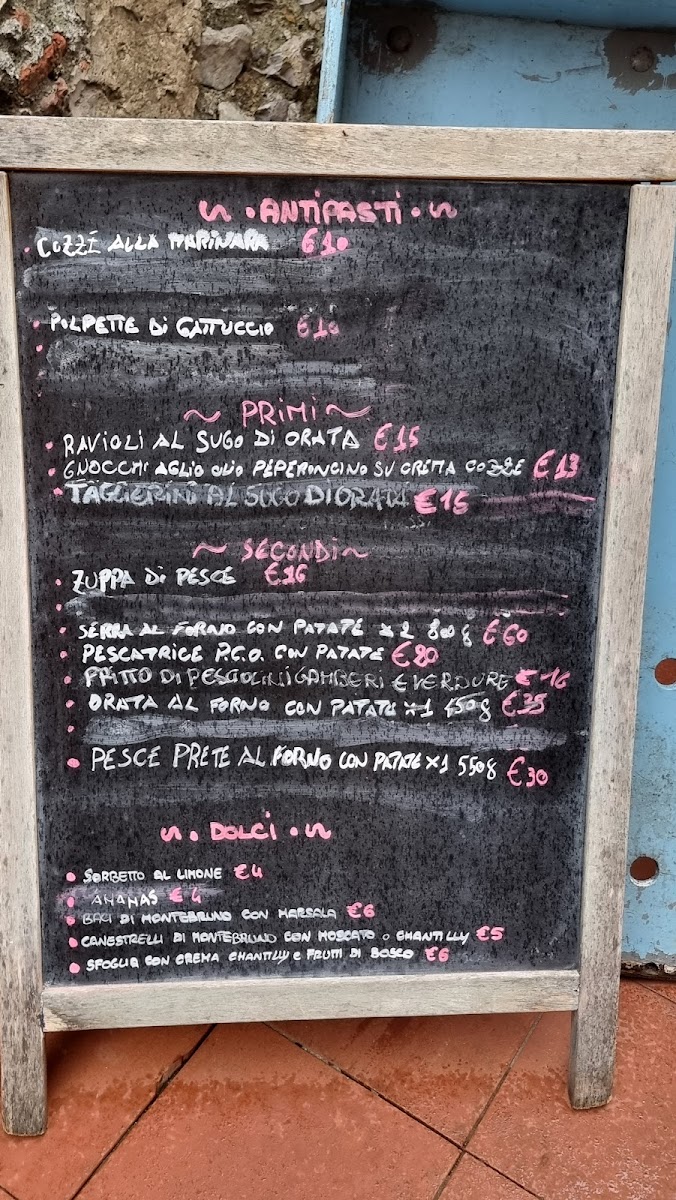 ANTIPASTI
COZZE ALLA MARINARA €10
POLPETTE Di GATTUCCIO €10
PRiMi
RAVIOLI AL SUGO Di ORATA €15
GNOCCHI AGLIO OLIO PEPERONCINO SU CREMA COZZE €13
TAGLIERINI AL SUGO DI ORATA €15
SECONDi
ZUPPA Di PESCE €16
SERRA AL FORNO CON PATATE x 2 800g €60
PESCATRICE P.C.O. CON PATATE
FRITTO DI PESCIOLINI GAMBERI E VERDURE €16
ORATA AL FORNO CON PATATE x1 450g €35
PESCE PRETE AL FORNO CON PATATE x1 550g €30
DOLCi
SORBETTO AL LIMONE €4
ANANAS €4
BACI DI MONTEBRUNO CON MARSALA €6
CANESTRELLI DI MONTEBRUNO CON MOSCATO o CHANTILLY €5
SFOGLIA CON CREMA CHANTILLY e FRUTTI DI BOSCO €6